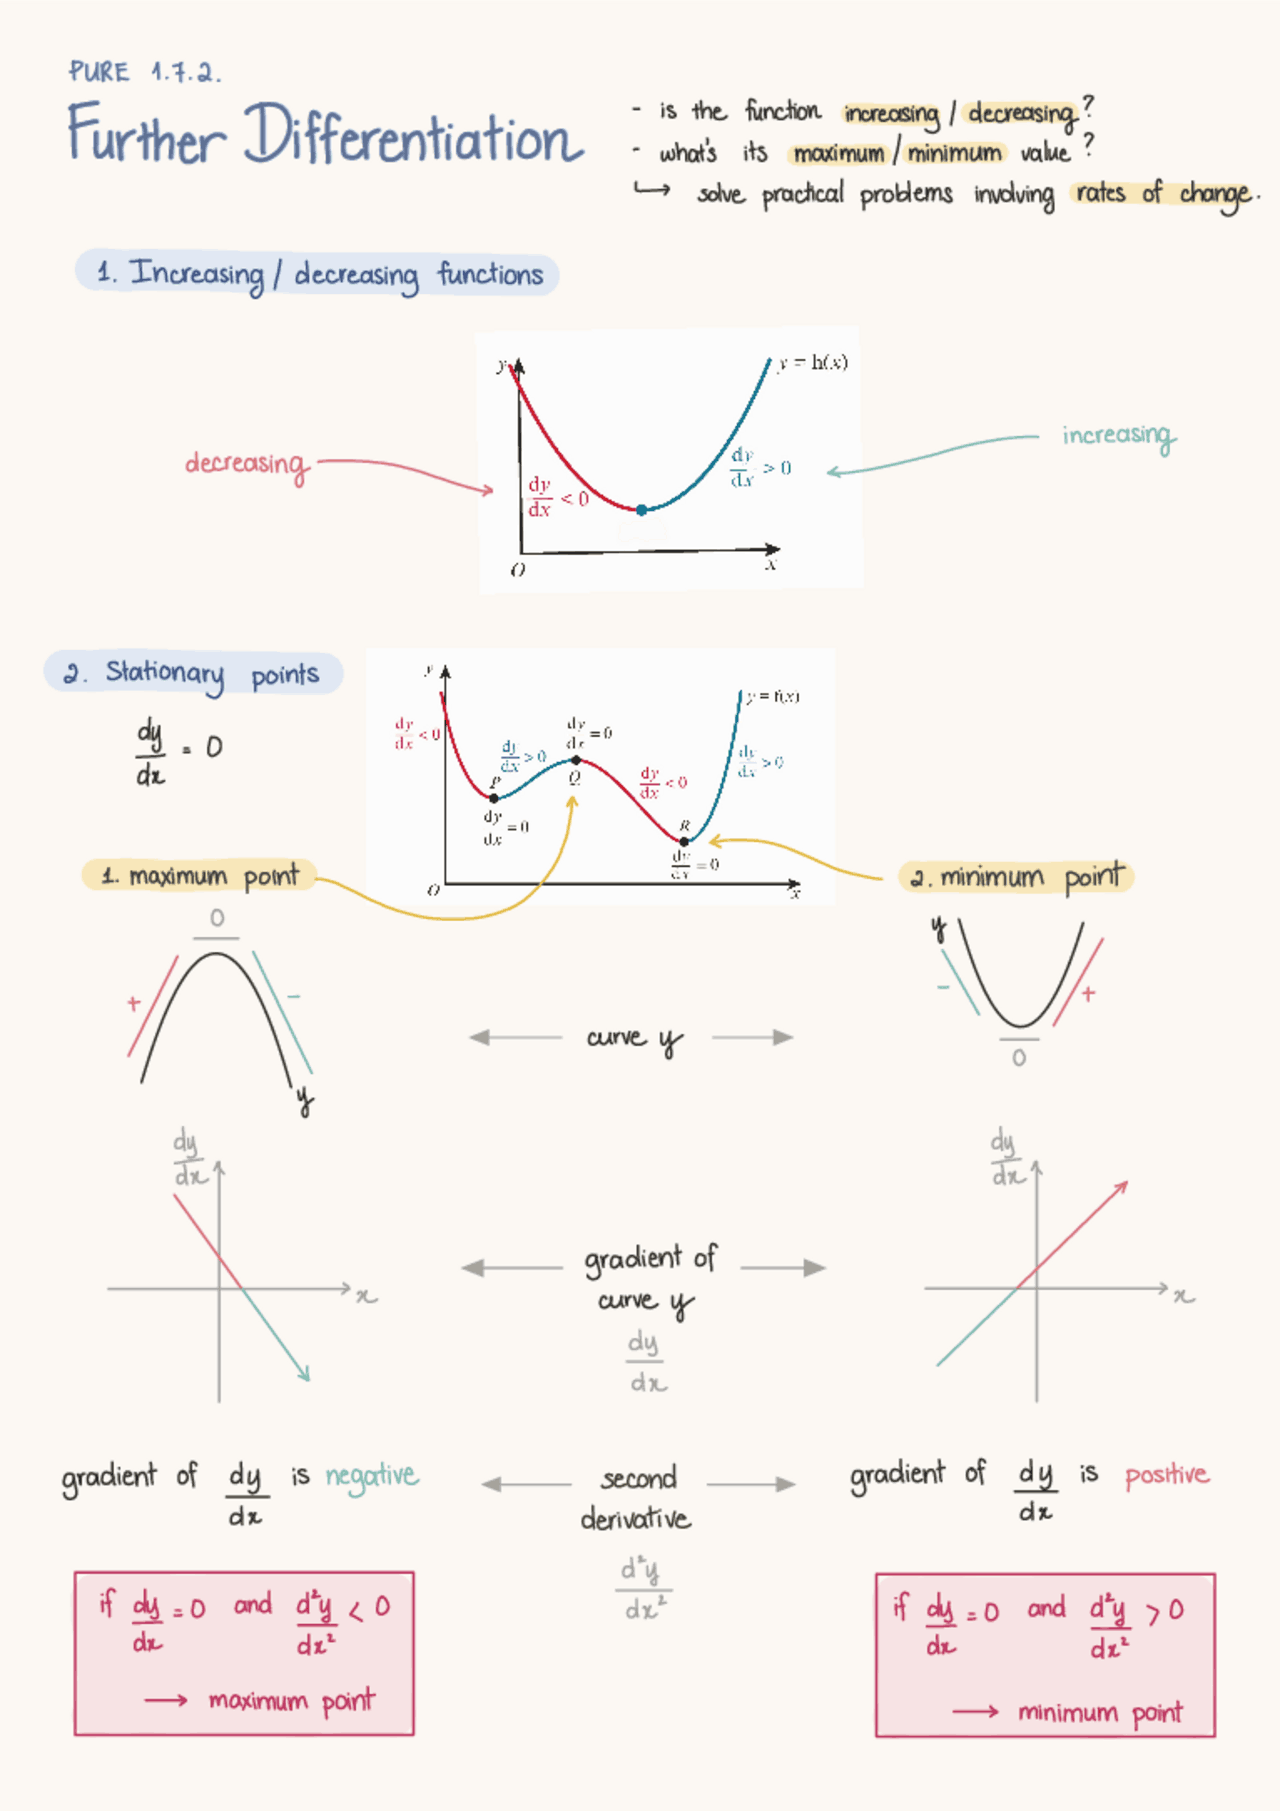 PURE 1.7.2.
Further Differentiation
- is the function increasing / decreasing?
- what's its maximum / minimum value?
↳ solve practical problems involving rates of change.
1. Increasing / decreasing functions
y
y = h(x)
decreasing
increasing
dy/dx < 0
dy/dx > 0
O
x
2. Stationary points
dy/dx = 0
y
y = f(x)
dy/dx < 0
dy/dx > 0
dy/dx = 0
dy/dx < 0
dy/dx > 0
P
Q
R
dy/dx = 0
dy/dx = 0
O
x
1. maximum point
2. minimum point
0
+
-
y
curve y
y
-
+
0
dy/dx
x
gradient of
curve y
dy/dx
dy/dx
x
gradient of dy/dx is negative
second
derivative
d²y/dx²
gradient of dy/dx is positive
if dy/dx = 0 and d²y/dx² < 0
→ maximum point
if dy/dx = 0 and d²y/dx² > 0
→ minimum point